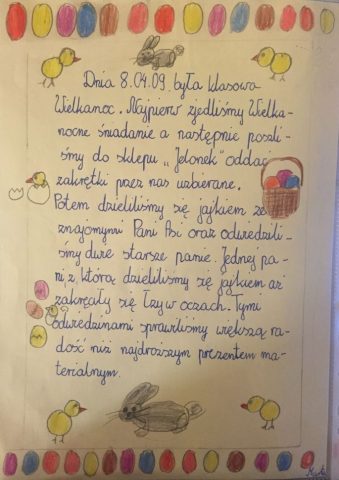 Dnia 8.04.09 była klasowa
Wielkanoc. Najpierw zjedliśmy Wielka-
nocne śniadanie a następnie poszli-
śmy do sklepu „Jelonek" oddać
zakrętki przez nas uzbierane.
Potem dzieliliśmy się jajkiem ze
znajomymi Pani Asi oraz odwiedzili-
śmy dwie starsze panie. Jednej pa-
ni z którą dzieliliśmy się jajkiem aż
zakręciły się łzy w oczach. Tymi
odwiedzinami sprawiliśmy większą ra-
dość niż najdroższym prezentem ma-
terialnym.